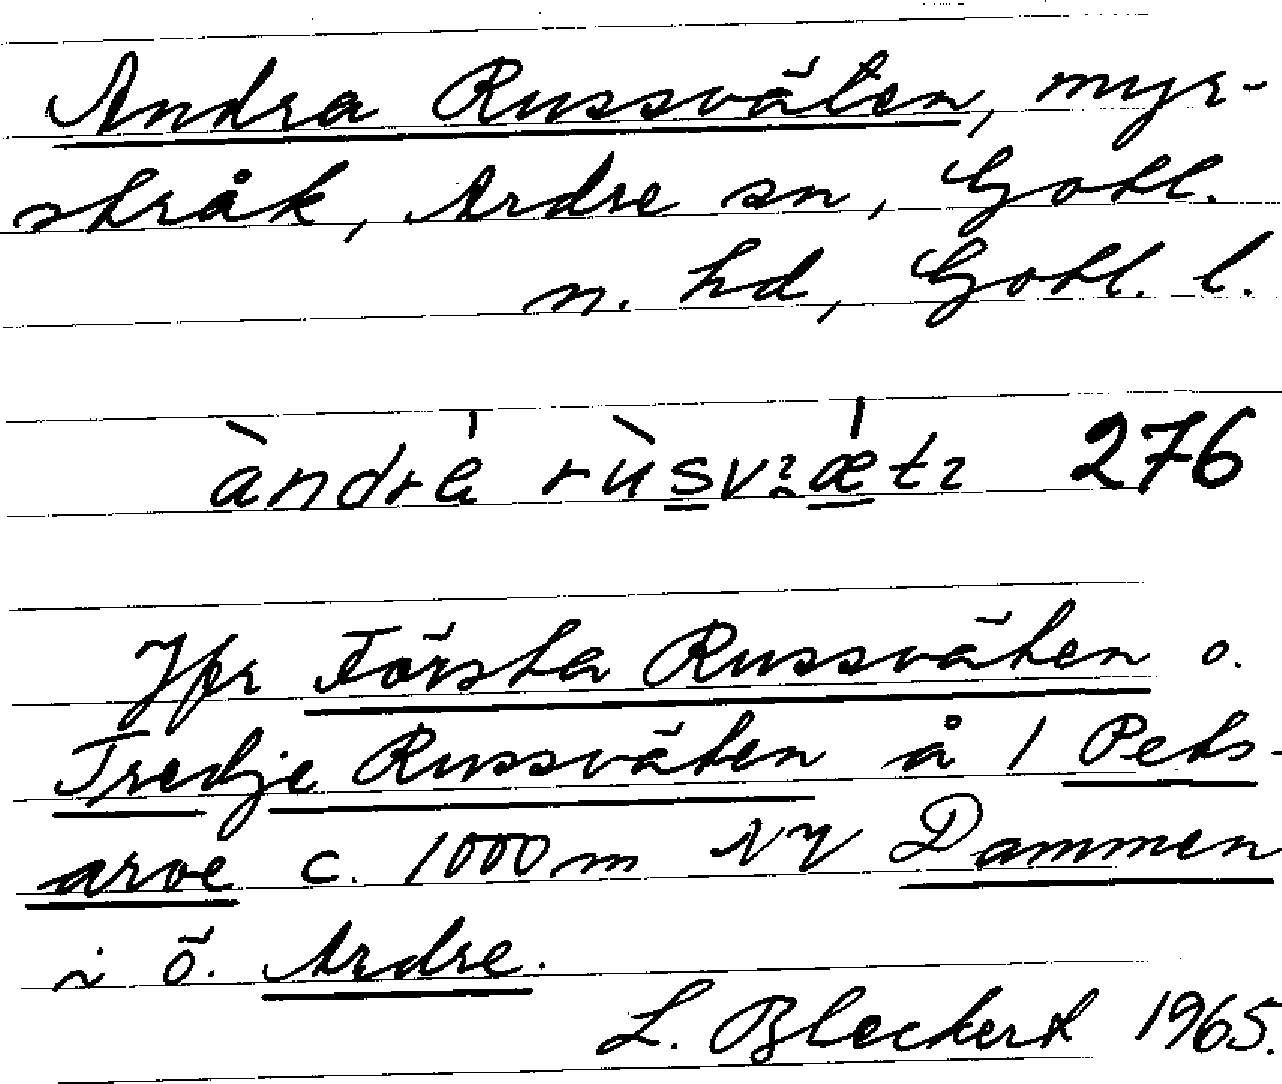 Andra Russväten, myr-
stråk, Ardre sn, Gotl.
n. hd, Gotl. l.
àndrè rùsvɂæ̍tɂ 276
Jfr Första Russväten o.
Tredje Russväten å 1 Pets-
arve c. 1000 m NV Dammen
i ö. Ardre.
L. Bleckert 1965.